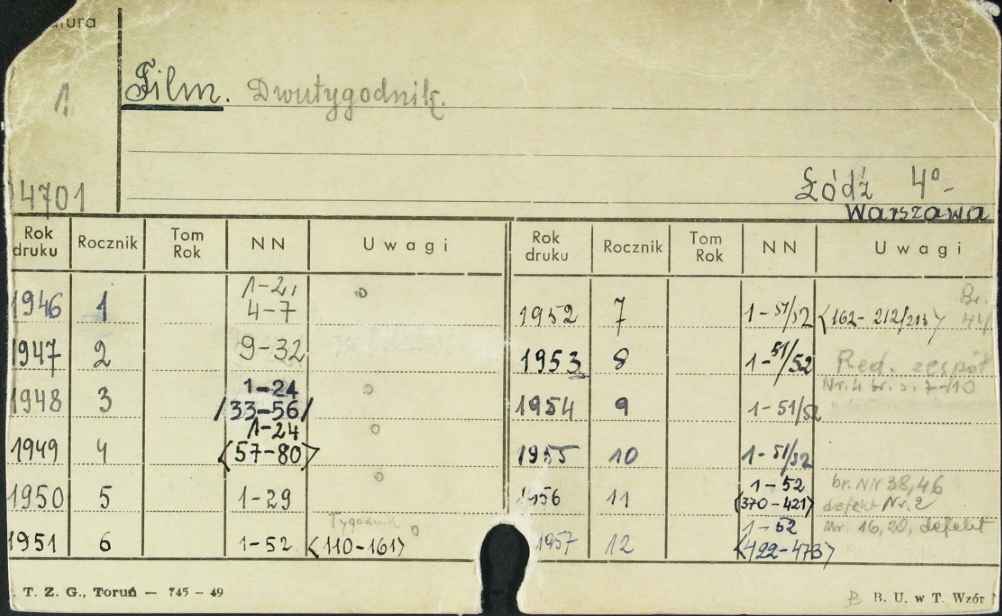 1
Film. Dwutygodnik.
4701
Łódź 4°-
Warszawa
Rok druku Rocznik Tom Rok NN Uwagi
1946 1 1-2, 4-7
1947 2 9-32
1948 3 1-24 /33-56/
1949 4 1-24 <57-80>
1950 5 1-29
1951 6 1-52 <110-161> Tygodnik
Rok druku Rocznik Tom Rok NN Uwagi
1952 7 1-51/52 <162-212/213>
1953 8 1-51/52 Red. zespół
1954 9 1-51/52 Nr. 4 br. s. 7-10
1955 10 1-51/52
1956 11 1-52 (370-421) br. Nr 38,46 defekt Nr. 2
1957 12 1-52 <422-473> nr. 16,20, defekt
T. Z. G., Toruń — 745 - 49
B. U. w T. Wzór